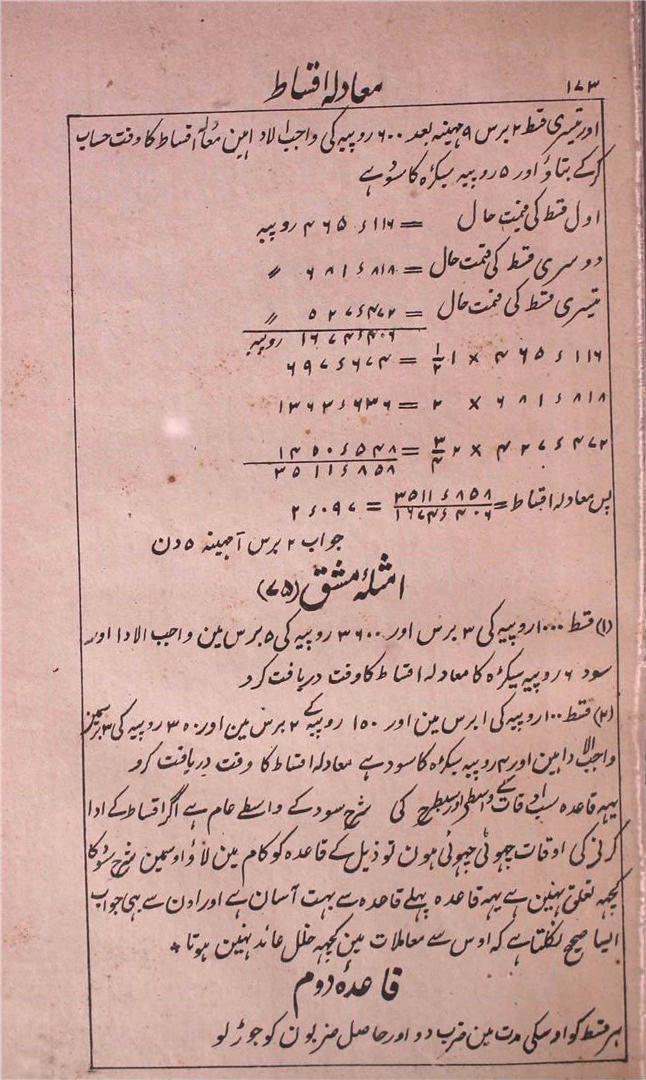 ۱۷۳
معادلہ اقساط
اور تیسری قسط ۲ برس ۹ مہینہ بعد ۶۰۰ روپیہ کی واجب الادا ہین معادلہ اقساط کا وقت حساب
کرکے بتاؤ اور ۵ روپیہ سیکڑہ کا سود ہے
اول قسط کی قیمت حال = ۴۶۵٫۱۱۶ روپیہ
دوسری قسط کی قیمت حال = ۶۸۱٫۸۱۸ 〃
تیسری قسط کی قیمت حال = ۵۲۷٫۴۷۲ 〃
۱۶۷۴٫۴۰۶ روپیہ
۴۶۵٫۱۱۶ × ۱ ۱/۲ = ۶۹۷٫۶۷۴
۶۸۱٫۸۱۸ × ۲ = ۱۳۶۳٫۶۳۶
۴۲۷٫۴۷۲ × ۲ ۳/۴ = ۱۴۵۰٫۵۴۸
۳۵۱۱٫۸۵۸
پس معادلہ اقساط = ۳۵۱۱٫۸۵۸/۱۶۷۴٫۴۰۶ = ۲٫۰۹۷
جواب ۲ برس ۱ مہینہ ۵ دن
امثلہٴ مشق (۷۵)
(۱) قسط ۱۰۰۰ روپیہ کی ۳ برس اور ۳۶۰۰ روپیہ کی ۵ برس مین واجب الادا اور
سود ۶ روپیہ سیکڑہ کا معادلہ اقساط کا وقت دریافت کرو
(۲) قسط ۱۰۰ روپیہ کی ۱ برس مین اور ۱۵۰ روپیہ کے ۲ برس مین اور ۳۰۰ روپیہ کی ۳ برسمین
واجب الادا ہین اور ۴ روپیہ سیکڑہ کا سود ہے معادلہ اقساط کا وقت دریافت کرو
یہہ قاعدہ سب اوقات کے واسطے اور سبطرح کی شرح سود کے واسطے عام ہے اگر اقساط کے ادا
کرنی کی اوقات چہوٹی چہوٹی ہون تو ذیل کے قاعدہ کو کام مین لاؤ اوسمین شرح سود کا
کچہہ تعلق نہین ہے یہہ قاعدہ پہلے قاعدہ سے بہت آسان ہے اور اون سے بہی جواب
ایسا صحیح نکلتا ہے کہ اوس سے معاملات مین کچہہ خلل عائد نہین ہوتا *
قاعدہٴ دوم
ہر قسط کو اوسکی مدت مین ضرب دو اور حاصل ضربون کو جوڑ لو